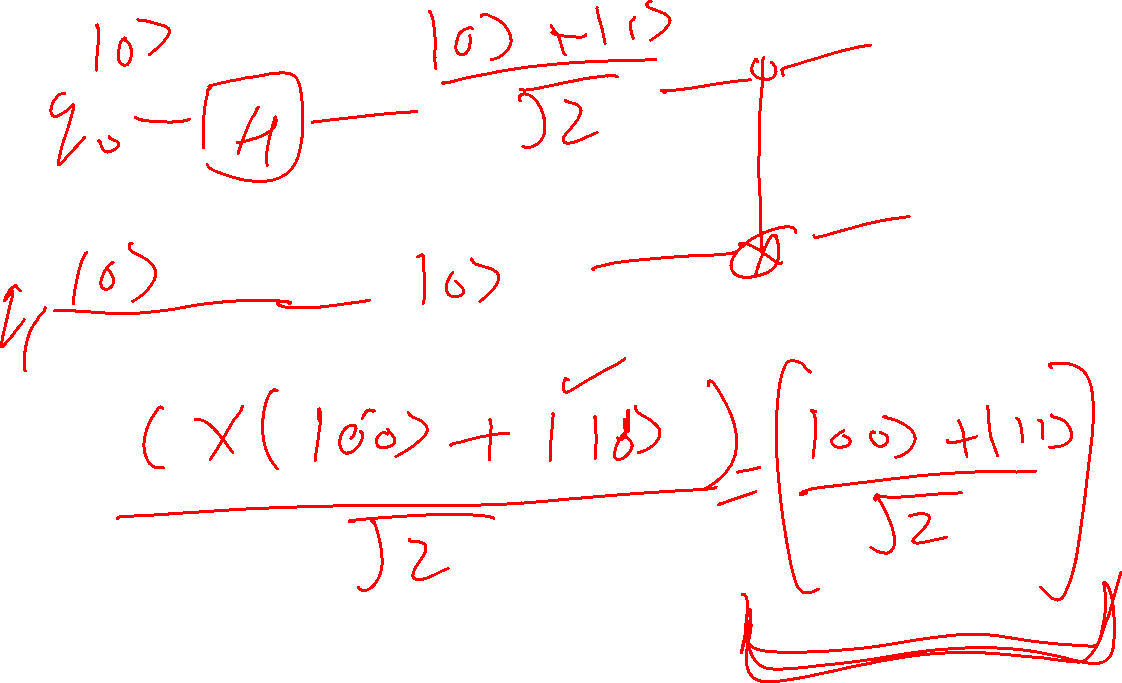 |0⟩
q₀ H (|0⟩ + |1⟩)/√2
q₁ |0⟩ |0⟩
(X(|00⟩ + |10⟩)/√2 = [(|00⟩ + |11⟩)/√2]